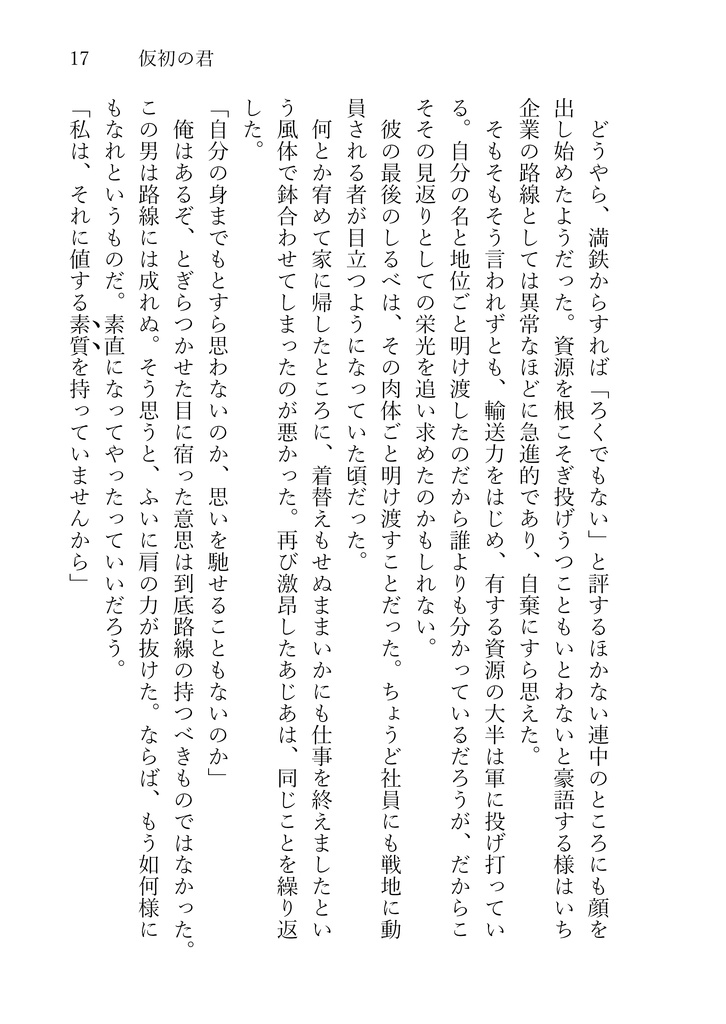 17 仮初の君
どうやら、満鉄からすれば「ろくでもない」と評するほかない連中のところにも顔を
出し始めたようだった。資源を根こそぎ投げうつこともいとわないと豪語する様はいち
企業の路線としては異常なほどに急進的であり、自棄にすら思えた。
そもそもそう言われずとも、輸送力をはじめ、有する資源の大半は軍に投げ打ってい
る。自分の名と地位ごと明け渡したのだから誰よりも分かっているだろうが、だからこ
そその見返りとしての栄光を追い求めたのかもしれない。
彼の最後のしるべは、その肉体ごと明け渡すことだった。ちょうど社員にも戦地に動
員される者が目立つようになっていた頃だった。
何とか宥めて家に帰したところに、着替えもせぬままいかにも仕事を終えましたとい
う風体で鉢合わせてしまったのが悪かった。再び激昂したあじあは、同じことを繰り返
した。
「自分の身までもとすら思わないのか、思いを馳せることもないのか」
俺はあるぞ、とぎらつかせた目に宿った意思は到底路線の持つべきものではなかった。
この男は路線には成れぬ。そう思うと、ふいに肩の力が抜けた。ならば、もう如何様に
もなれというものだ。素直になってやったっていいだろう。
「私は、それに値する素質を持っていませんから」